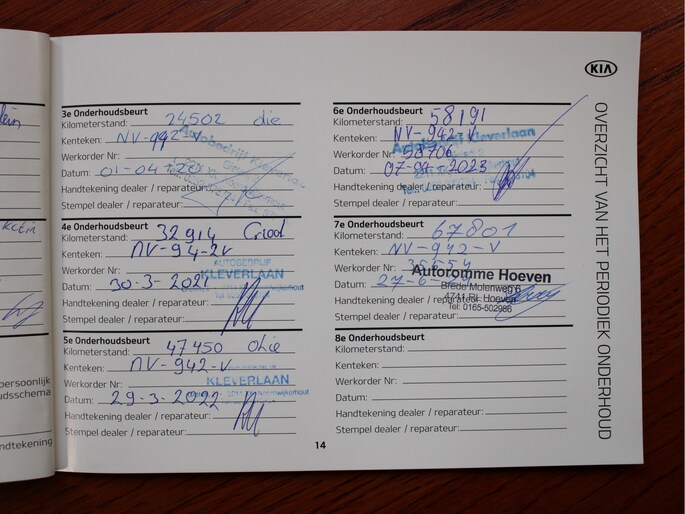 KIA
OVERZICHT VAN HET PERIODIEK ONDERHOUD
3e Onderhoudsbeurt
Kilometerstand: 24502
Kenteken: NV-942-V
Werkorder Nr:
Datum: 01-04-20
Handtekening dealer / reparateur:
Stempel dealer / reparateur:
4e Onderhoudsbeurt
Kilometerstand: 32914
Kenteken: NV-94-2V
Werkorder Nr:
AUTOBEDRIJF
KLEVERLAAN
Datum: 30-3-2021
Handtekening dealer / reparateur:
Stempel dealer / reparateur:
5e Onderhoudsbeurt
Kilometerstand: 47450 Olie
Kenteken: NV-942-V
Werkorder Nr:
KLEVERLAAN
Datum: 29-3-2022
Handtekening dealer / reparateur:
Stempel dealer / reparateur:
6e Onderhoudsbeurt
Kilometerstand: 58191
Kenteken: NV-942-V
Kleverlaan
Werkorder Nr: 58706
Datum: 07-04-2023
Handtekening dealer / reparateur:
Stempel dealer / reparateur:
7e Onderhoudsbeurt
Kilometerstand: 67801
Kenteken: NV-942-V
Werkorder Nr: 35554
Autoromme Hoeven
Datum: 27-6-
Brede Molenweg 6
4741 RL Hoeven
Handtekening dealer / reparateur:
Tel: 0165-502986
Stempel dealer / reparateur:
8e Onderhoudsbeurt
Kilometerstand:
Kenteken:
Werkorder Nr:
Datum:
Handtekening dealer / reparateur:
Stempel dealer / reparateur:
persoonlijk
udsschema
ndtekening
14